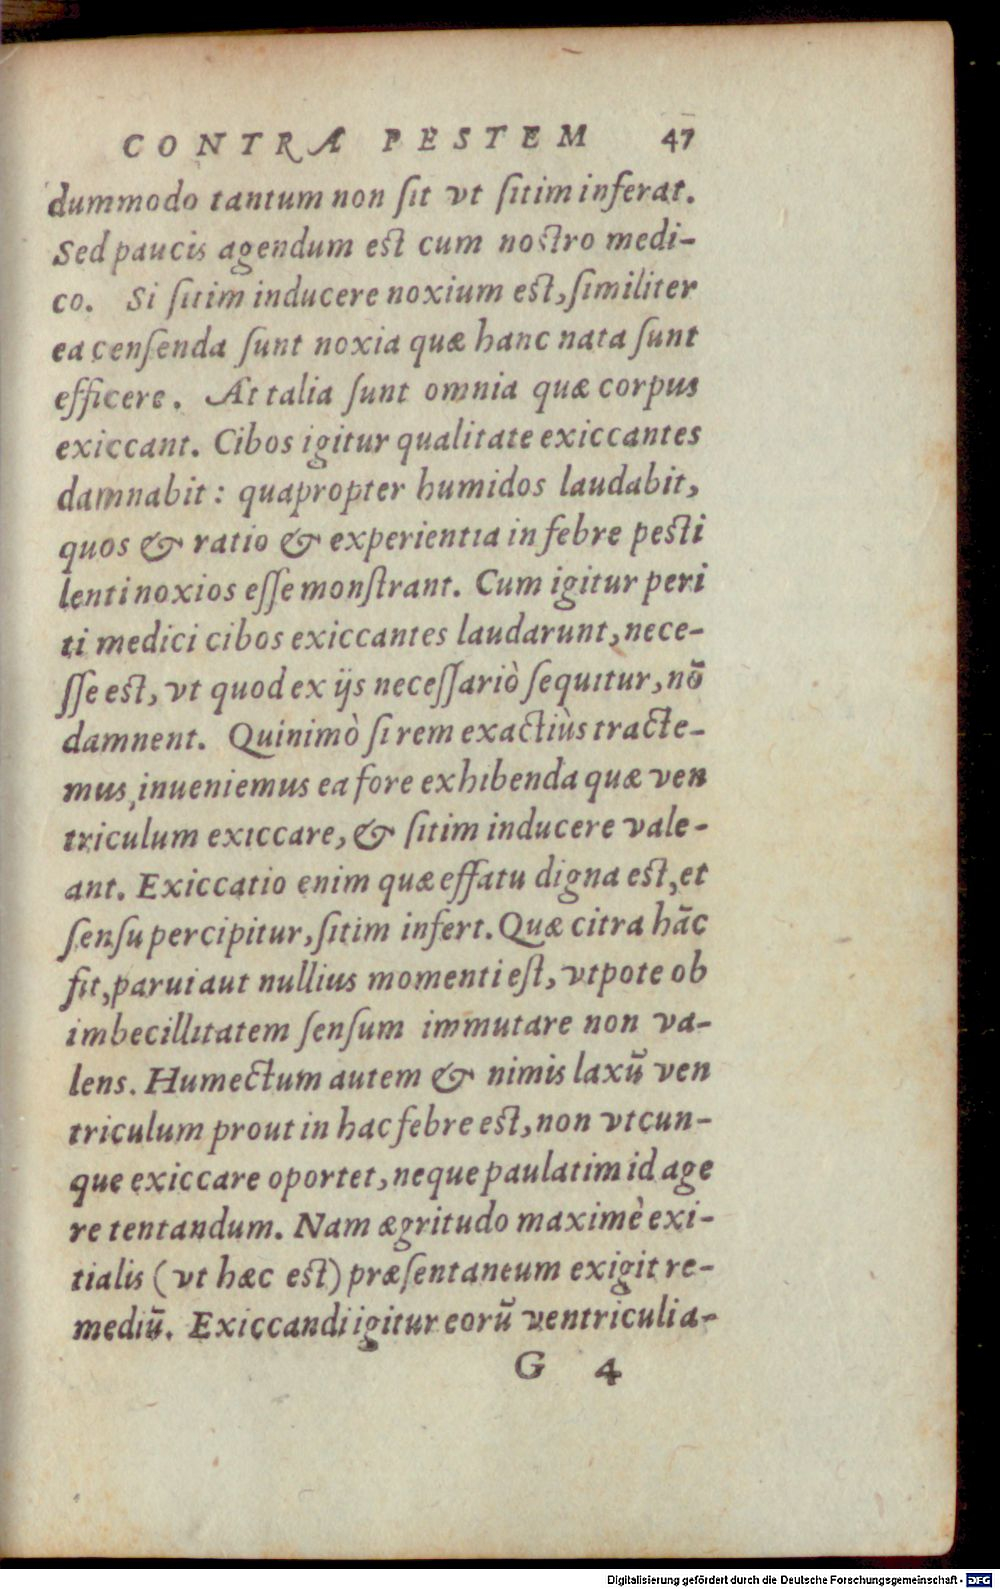 CONTRA PESTEM 47
dummodo tantum non ſit vt ſitim inferat.
Sed paucis agendum eſt cum noſtro medi-
co. Si ſitim inducere noxium eſt, ſimiliter
ea cenſenda ſunt noxia quæ hanc nata ſunt
efficere. At talia ſunt omnia quæ corpus
exiccant. Cibos igitur qualitate exiccantes
damnabit: quapropter humidos laudabit,
quos & ratio & experientia in febre peſti
lenti noxios eſſe monſtrant. Cum igitur peri
ti medici cibos exiccantes laudarunt, nece-
ſſe eſt, vt quod ex ijs neceſſariò ſequitur, nō
damnent. Quinimò ſi rem exactiùs tracte-
mus, inueniemus ea fore exhibenda quæ ven
triculum exiccare, & ſitim inducere vale-
ant. Exiccatio enim quæ effatu digna eſt, et
ſenſu percipitur, ſitim infert. Quæ citra hāc
fit, parui aut nullius momenti eſt, vtpote ob
imbecillitatem ſenſum immutare non va-
lens. Humectum autem & nimis laxū ven
triculum prout in hac febre eſt, non vtcun-
que exiccare oportet, neque paulatim id age
re tentandum. Nam ægritudo maximè exi-
tialis (vt hæc eſt) præſentaneum exigit re-
mediū. Exiccandi igitur eorū ventriculi a-
G 4
Digitalisierung gefördert durch die Deutsche Forschungsgemeinschaft - DFG